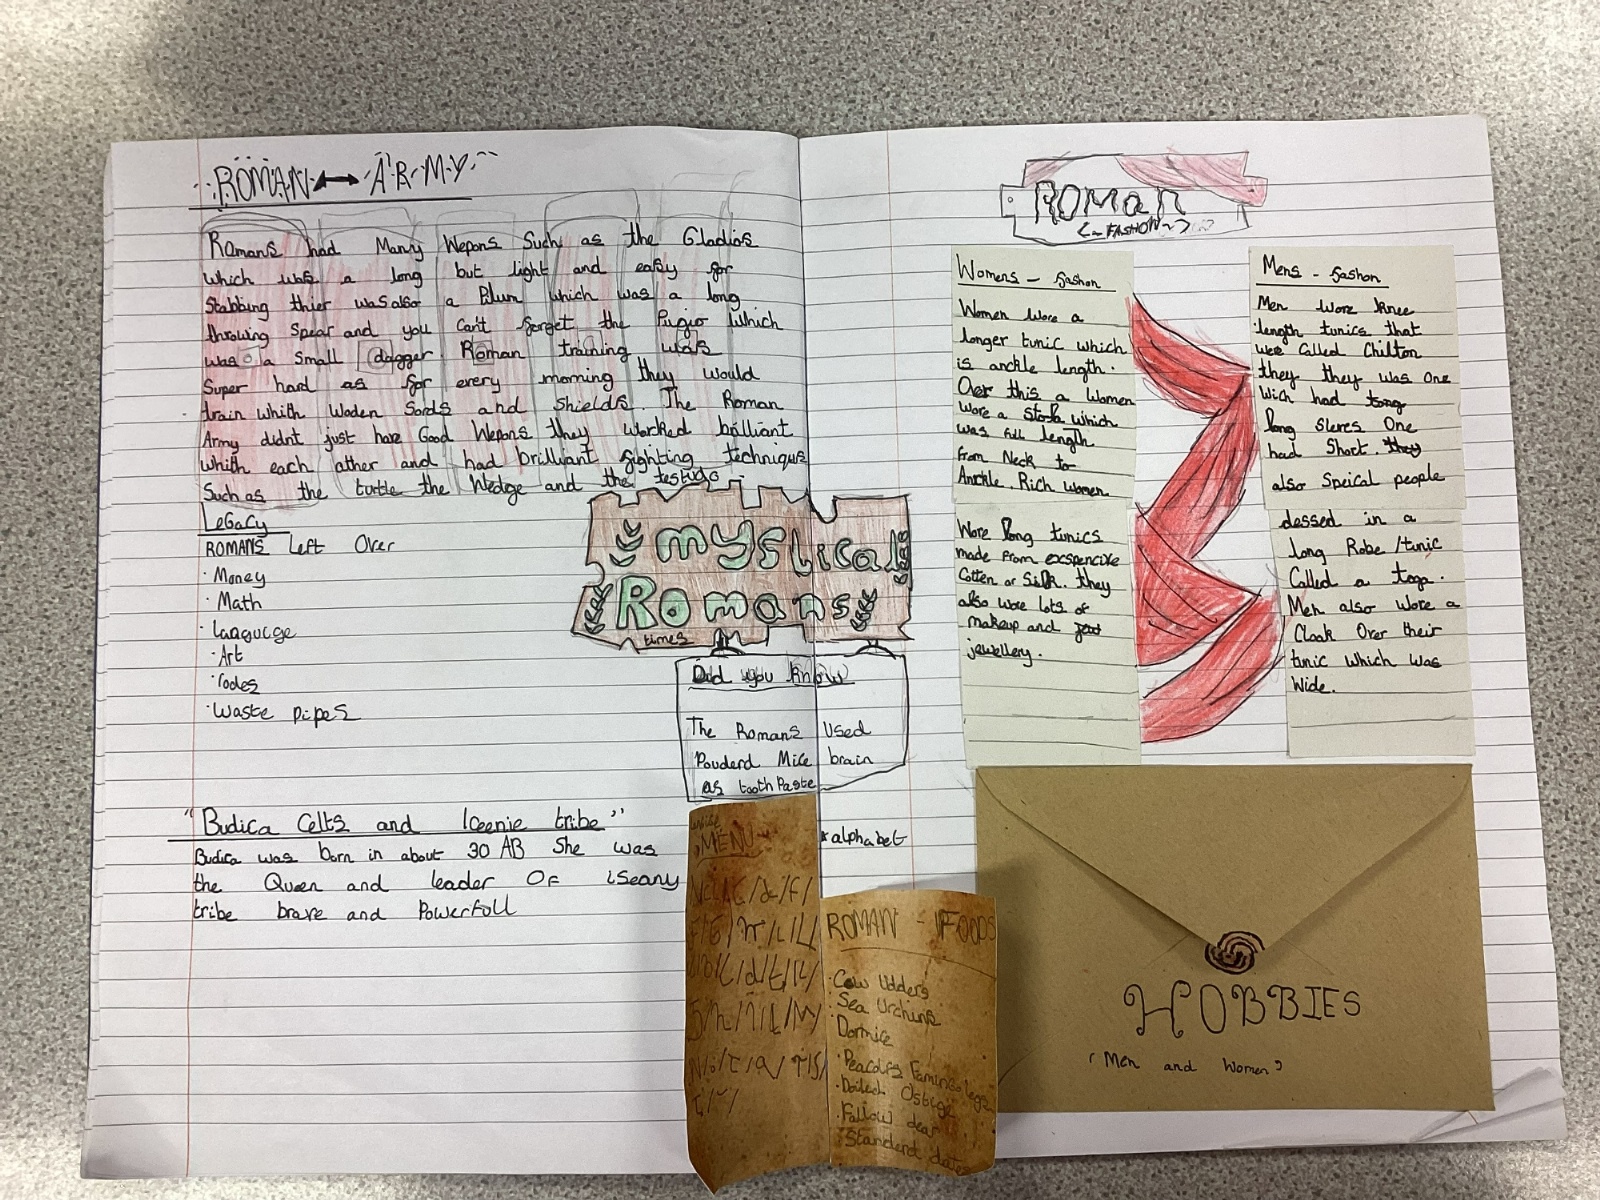 ROMAN ↔ ARMY
Romans had Many Wepons Such as the Gladios
which was a long but light and easy for
Stabbing thier was also a Plum which was a long
throwing spear and you can't forget the Pugio which
was a small dagger. Roman training was
Super hard as for every morning they would
train whith Woden Sords and Shields. The Roman
Army didnt just have Good Wepons they worked brilliant
whith each other and had brilliant fighting technique
Such as the turtle the Wedge and the testugo
LeGacy
ROMANS Left Over
· Money
· Math
· Languege
· Art
· rodes
· Waste pipes
"Budica Celts and Iceenie tribe"
Budica was born in about 30 AB She was
the Queen and leader OF iSeany
tribe brave and Powerfoll
mystical
Romans
times
Did you know
The Romans Used
Pouderd Mice brain
as tooth Paste
MENU
*alphabet
ROMAN - FOODS
· Cow Udders
· Sea Urchins
· Dormice
· Boiled
· Fallow dear
ROMan
<~FASHON~>
Womens - fashon
Women wore a
longer tunic which
is anckle length.
Over this a Women
Wore a Stola which
was full length
From Neck to
Anckle. Rich women
Wore long tunics
made from exspencive
Cotten or Silk. they
also wore lots of
makeup and
jewellery.
Mens - fashon
Men wore knee
length tunics that
wee called Chilton
they they was One
Wich had tong
long sleves One
had Short. they
also Speical people
dessed in a
long Robe/tunic
Called a toga.
Men also Wore a
Cloak Over their
tunic which was
Wide.
HOBBIES
"Men and Women"